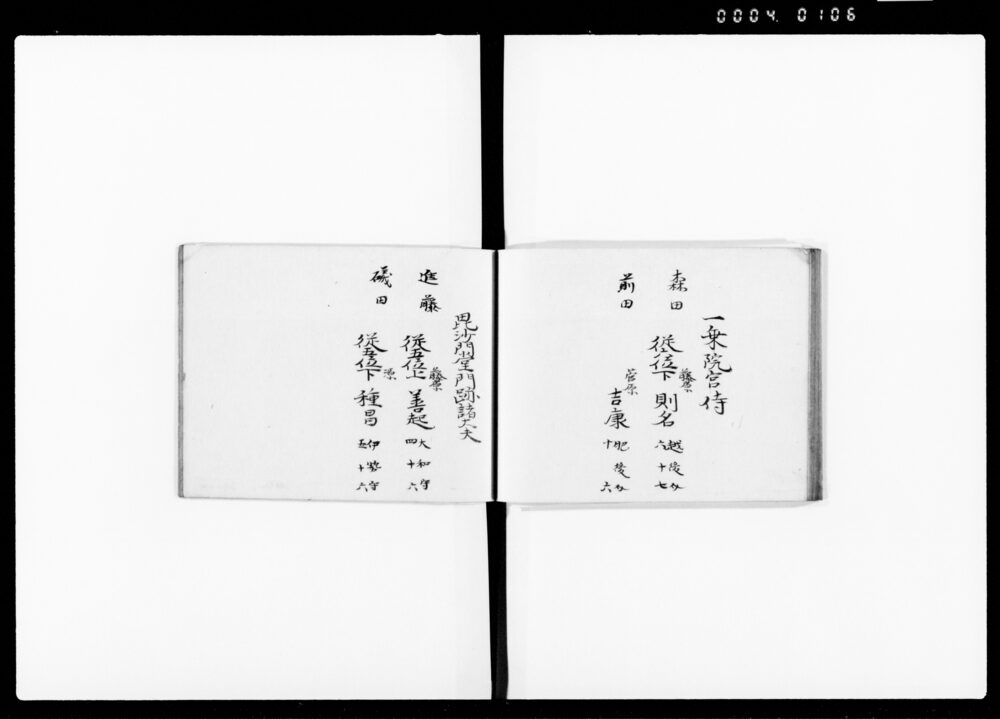 0004 0106
一乗院宮侍
森田 従六位下 藤原 則名 越後介 六十七
前田 菅原 吉康 肥後介 十六
毘沙門堂門跡諸大夫
進藤 従五位上 藤原 善起 大和守 四十六
磯田 従五位下 源 種昌 伊勢守 五十六